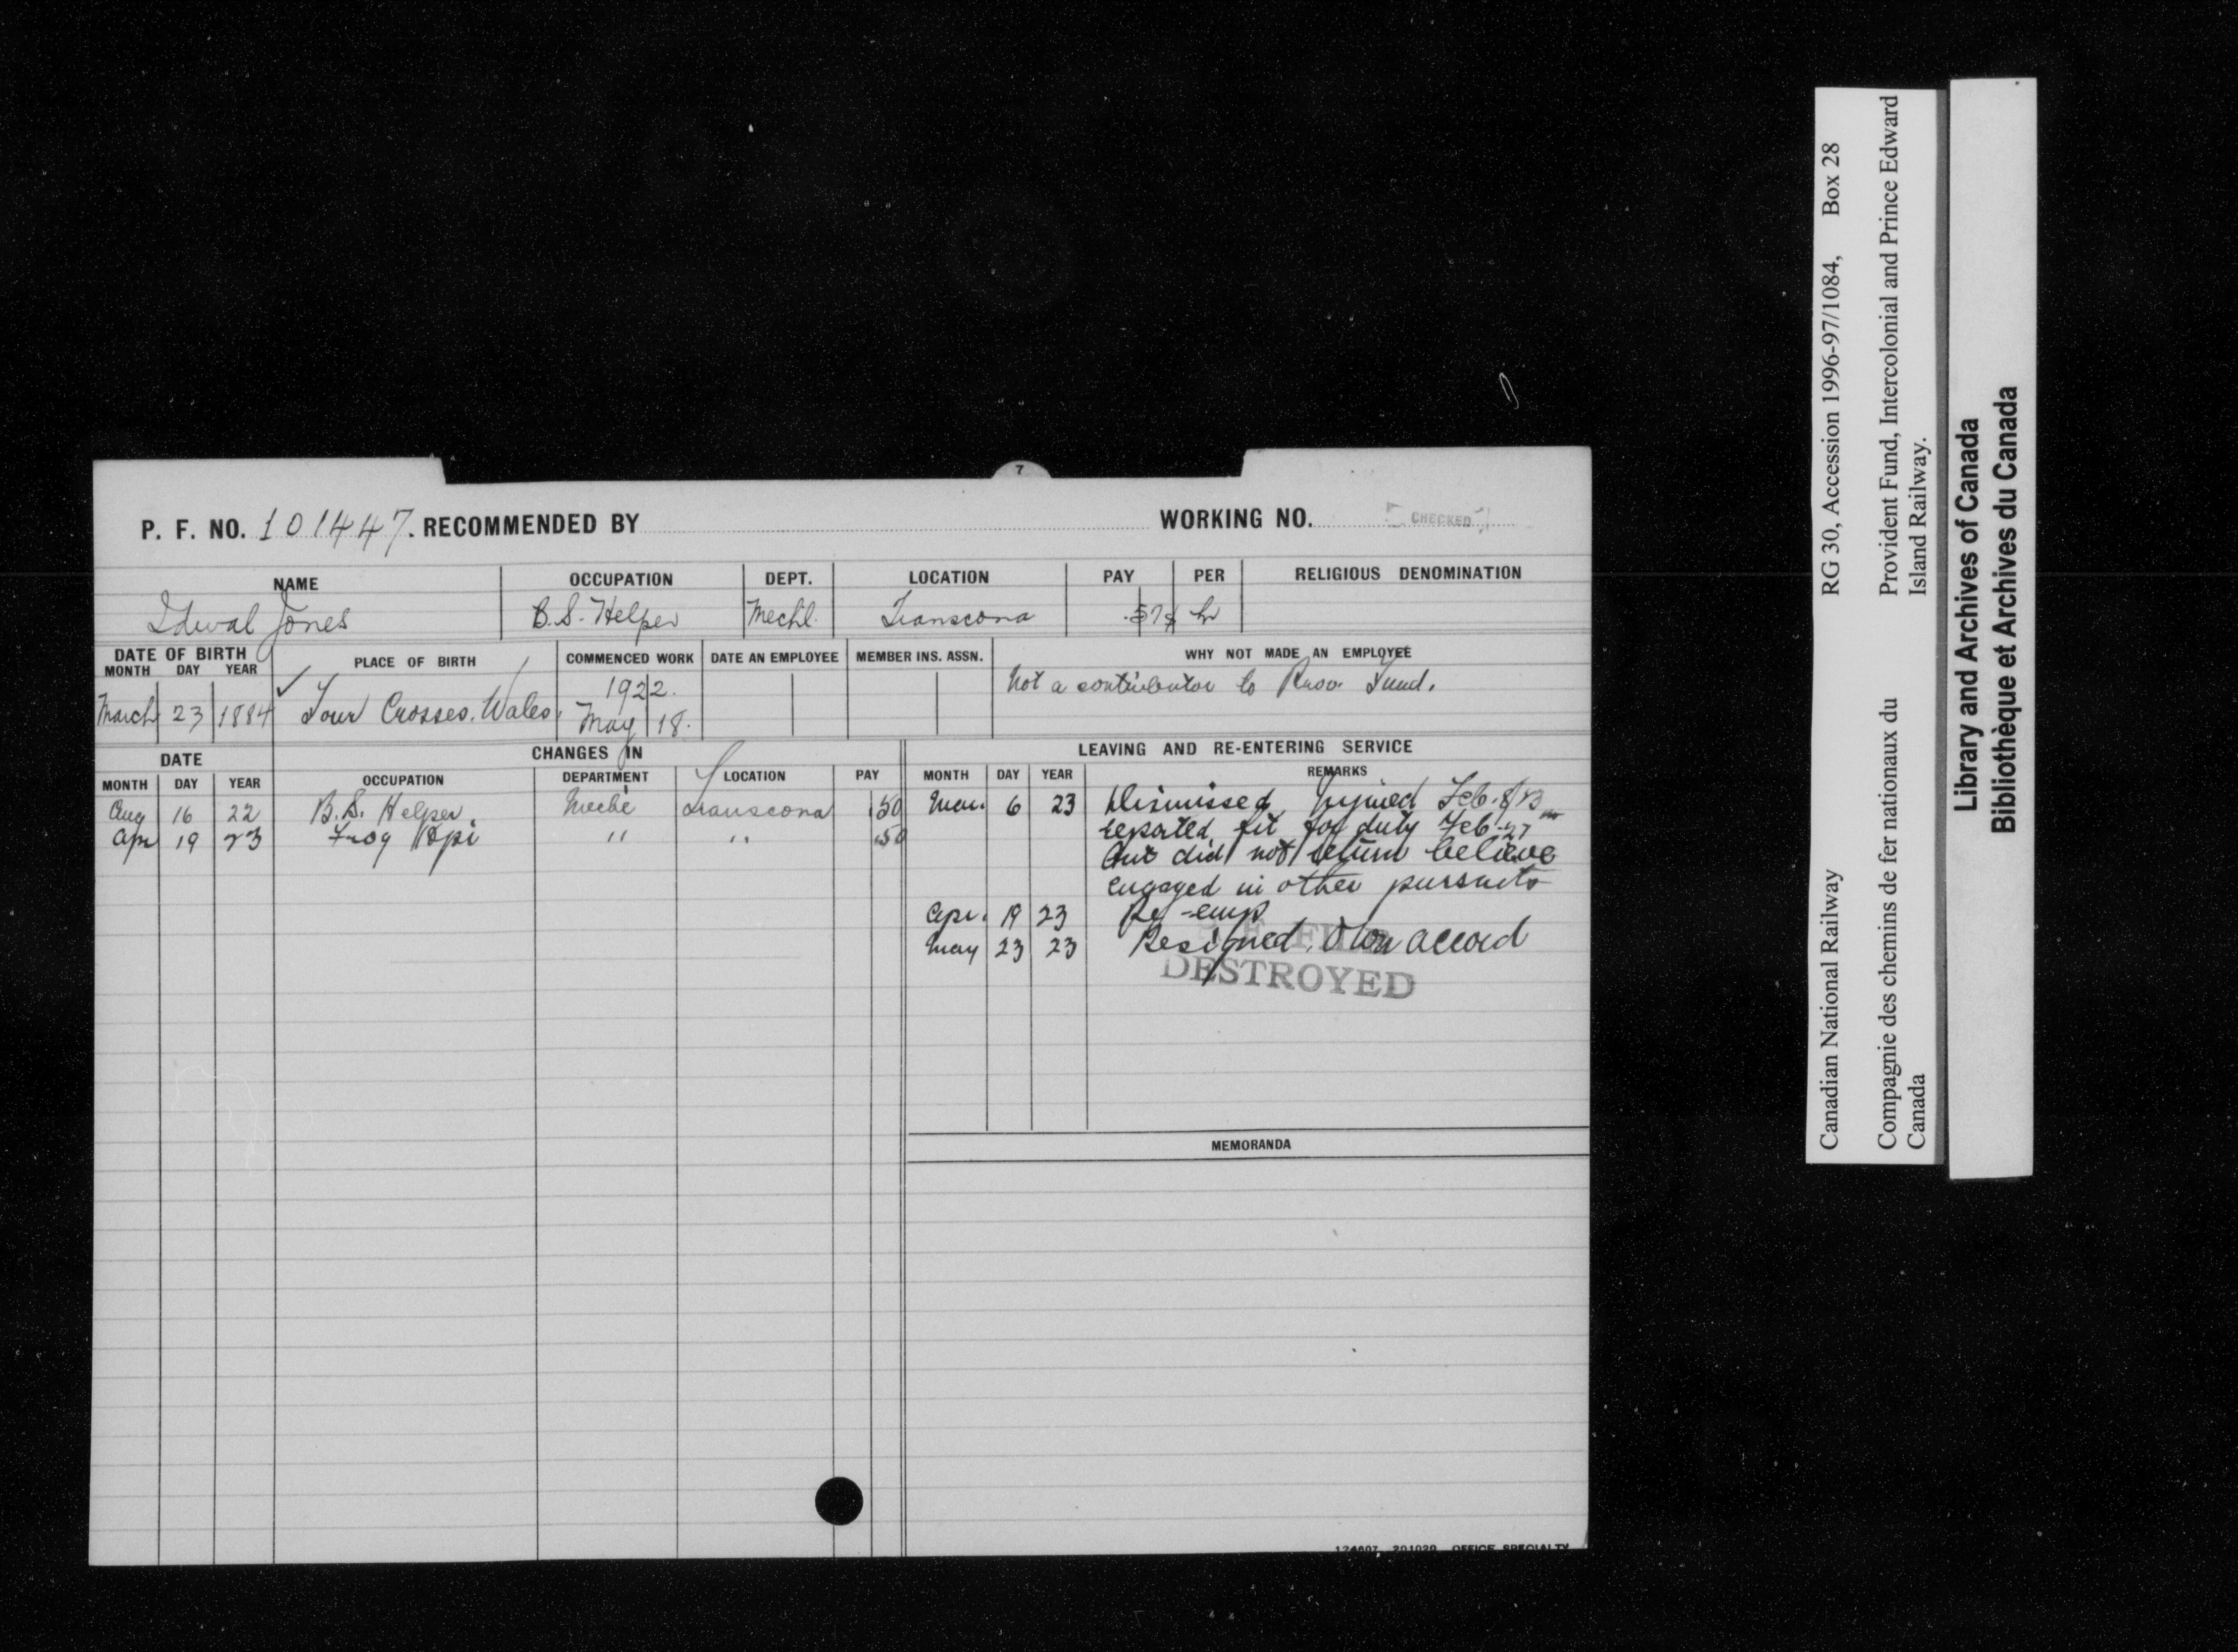 7
P. F. NO. 101447. RECOMMENDED BY WORKING NO. CHECKED
NAME OCCUPATION DEPT. LOCATION PAY PER RELIGIOUS DENOMINATION
Idwal Jones B.S. Helper Mechl. Transcona hr
DATE OF BIRTH
MONTH DAY YEAR PLACE OF BIRTH COMMENCED WORK DATE AN EMPLOYEE MEMBER INS. ASSN. WHY NOT MADE AN EMPLOYEE
1922. Not a contributor to Prov. Fund.
March 23 1884 Four Crosses. Wales. May 18.
DATE CHANGES IN LEAVING AND RE-ENTERING SERVICE
MONTH DAY YEAR OCCUPATION DEPARTMENT LOCATION PAY MONTH DAY YEAR REMARKS
Aug 16 22 B.S. Helper Transcona 50 Mar. 6 23 Dismissed, Injured Feb. 8/23
reported fit for duty Feb-27
Apr 19 23 Frog " " 50
But did not return believe
engaged in other pursuits
Apr. 19 23 Re-emp
May 23 23 Resigned. Own accord
FILE
DESTROYED
MEMORANDA
124607 201020 OFFICE SPECIALTY
Canadian National Railway RG 30, Accession 1996-97/1084, Box 28
Compagnie des chemins de fer nationaux du Provident Fund, Intercolonial and Prince Edward
Canada Island Railway.
Library and Archives of Canada
Bibliothèque et Archives du Canada